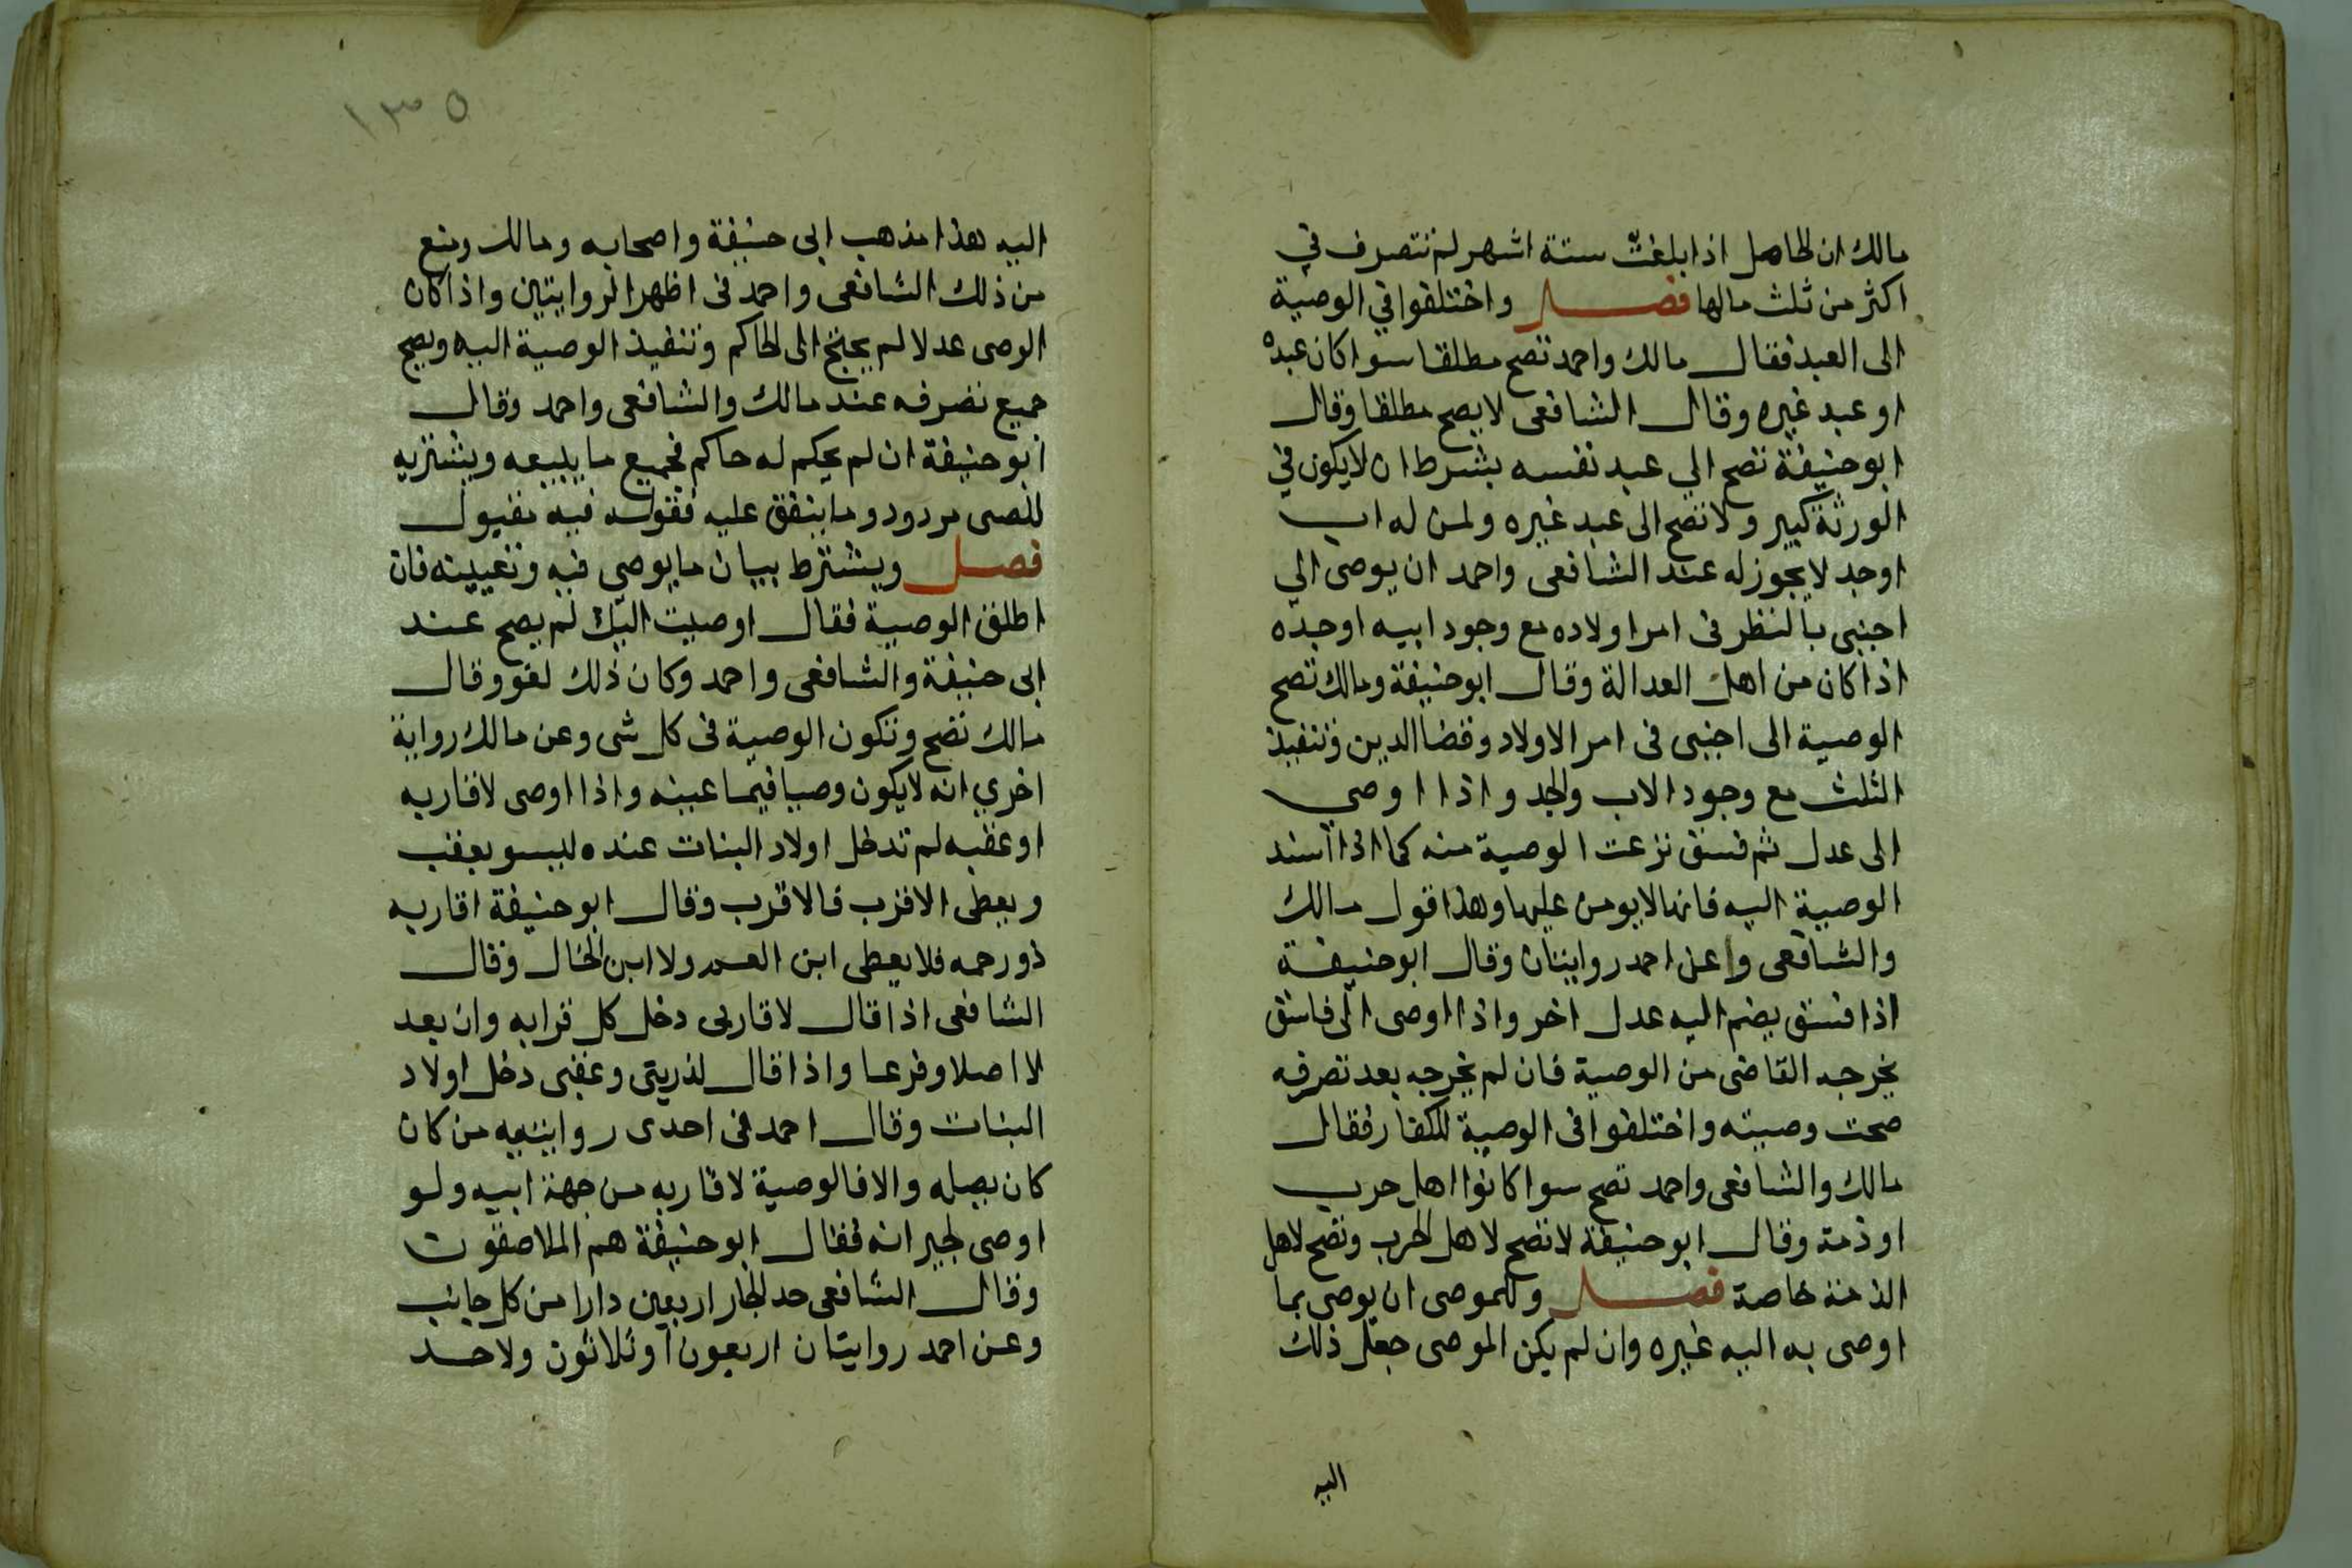 مالك ان الحامل اذا بلغت ستة اشهر لم تتصرف في
اكثر من ثلث مالها فصل واختلفوا في الوصية
الى العبد فقال مالك واحمد تصح مطلقا سوا كان عبده
او عبد غيره وقال الشافعى لا يصح مطلقا وقال
ابو حنيفة تصح الي عبد نفسه بشرط ان لا يكون في
الورثة كبير ولا تصح الى عبد غيره ولمن له اب
او جد لا يجوز له عند الشافعى واحمد ان يوصى الي
اجنبى بالنظر فى امر اولاده مع وجود ابيه او جده
اذا كان من اهل العدالة وقال ابو حنيفة ومالك تصح
الوصية الى اجنبى فى امر الاولاد وقضا الدين وتنفيذ
الثلث مع وجود الاب والجد واذا اوصي
الى عدل ثم فسق نزعت الوصية منه كما اذا اسند
الوصية اليه فانها لا يومن عليها وهذا قول مالك
والشافعى وعن احمد روايتان وقال ابو حنيفة
اذا فسق يضم اليه عدل اخر واذا اوصى الى فاسق
يخرجه القاضى من الوصية فان لم يخرجه بعد تصرفه
صحت وصيته واختلفوا فى الوصية للكفار فقال
مالك والشافعى واحمد تصح سوا كانوا اهل حرب
او ذمة وقال ابو حنيفة لا تصح لاهل الحرب وتصح لاهل
الذمة خاصة فصل وللموصى ان يوصى بما
اوصى به اليه غيره وان لم يكن الموصى جعل ذلك
اليه
١٣٥
اليه هذا مذهب ابى حنيفة واصحابه ومالك ومنع
من ذلك الشافعى واحمد فى اظهر الروايتين واذا كان
الوصى عدلا لم يحتج الى الحاكم وتنفيذ الوصية اليه ويصح
جميع تصرفه عند مالك والشافعى واحمد وقال
ابو حنيفة ان لم يحكم له حاكم فجميع ما يبيعه ويشتريه
للصبى مردود وما ينفق عليه فقوله فيه مقبول
فصل ويشترط بيان ما يوصي فيه وتعيينه فان
اطلق الوصية فقال اوصيت اليك لم يصح عند
ابى حنيفة والشافعى واحمد وكان ذلك لغو وقال
مالك تصح وتكون الوصية فى كل شى وعن مالك رواية
اخري انه لا يكون وصيا فيما عينه واذا اوصى لاقاربه
او عقبه لم تدخل اولاد البنات عنده ليسو بعقب
ويعطى الاقرب فالاقرب وقال ابو حنيفة اقاربه
ذو رحمه فلا يعطى ابن العم ولا ابن الخال وقال
الشافعى اذا قال لاقاربى دخل كل قرابه وان بعد
لا اصلا وفرعا واذا قال لذريتى وعقبى دخل اولاد
البنات وقال احمد فى احدى روايتيه من كان
كان يصله والا فالوصية لاقاربه من جهة ابيه ولو
اوصى لجيرانه فقال ابو حنيفة هم الملاصقون
وقال الشافعى حد الجار اربعين دارا من كل جانب
وعن احمد روايتان اربعون او ثلاثون ولا حد